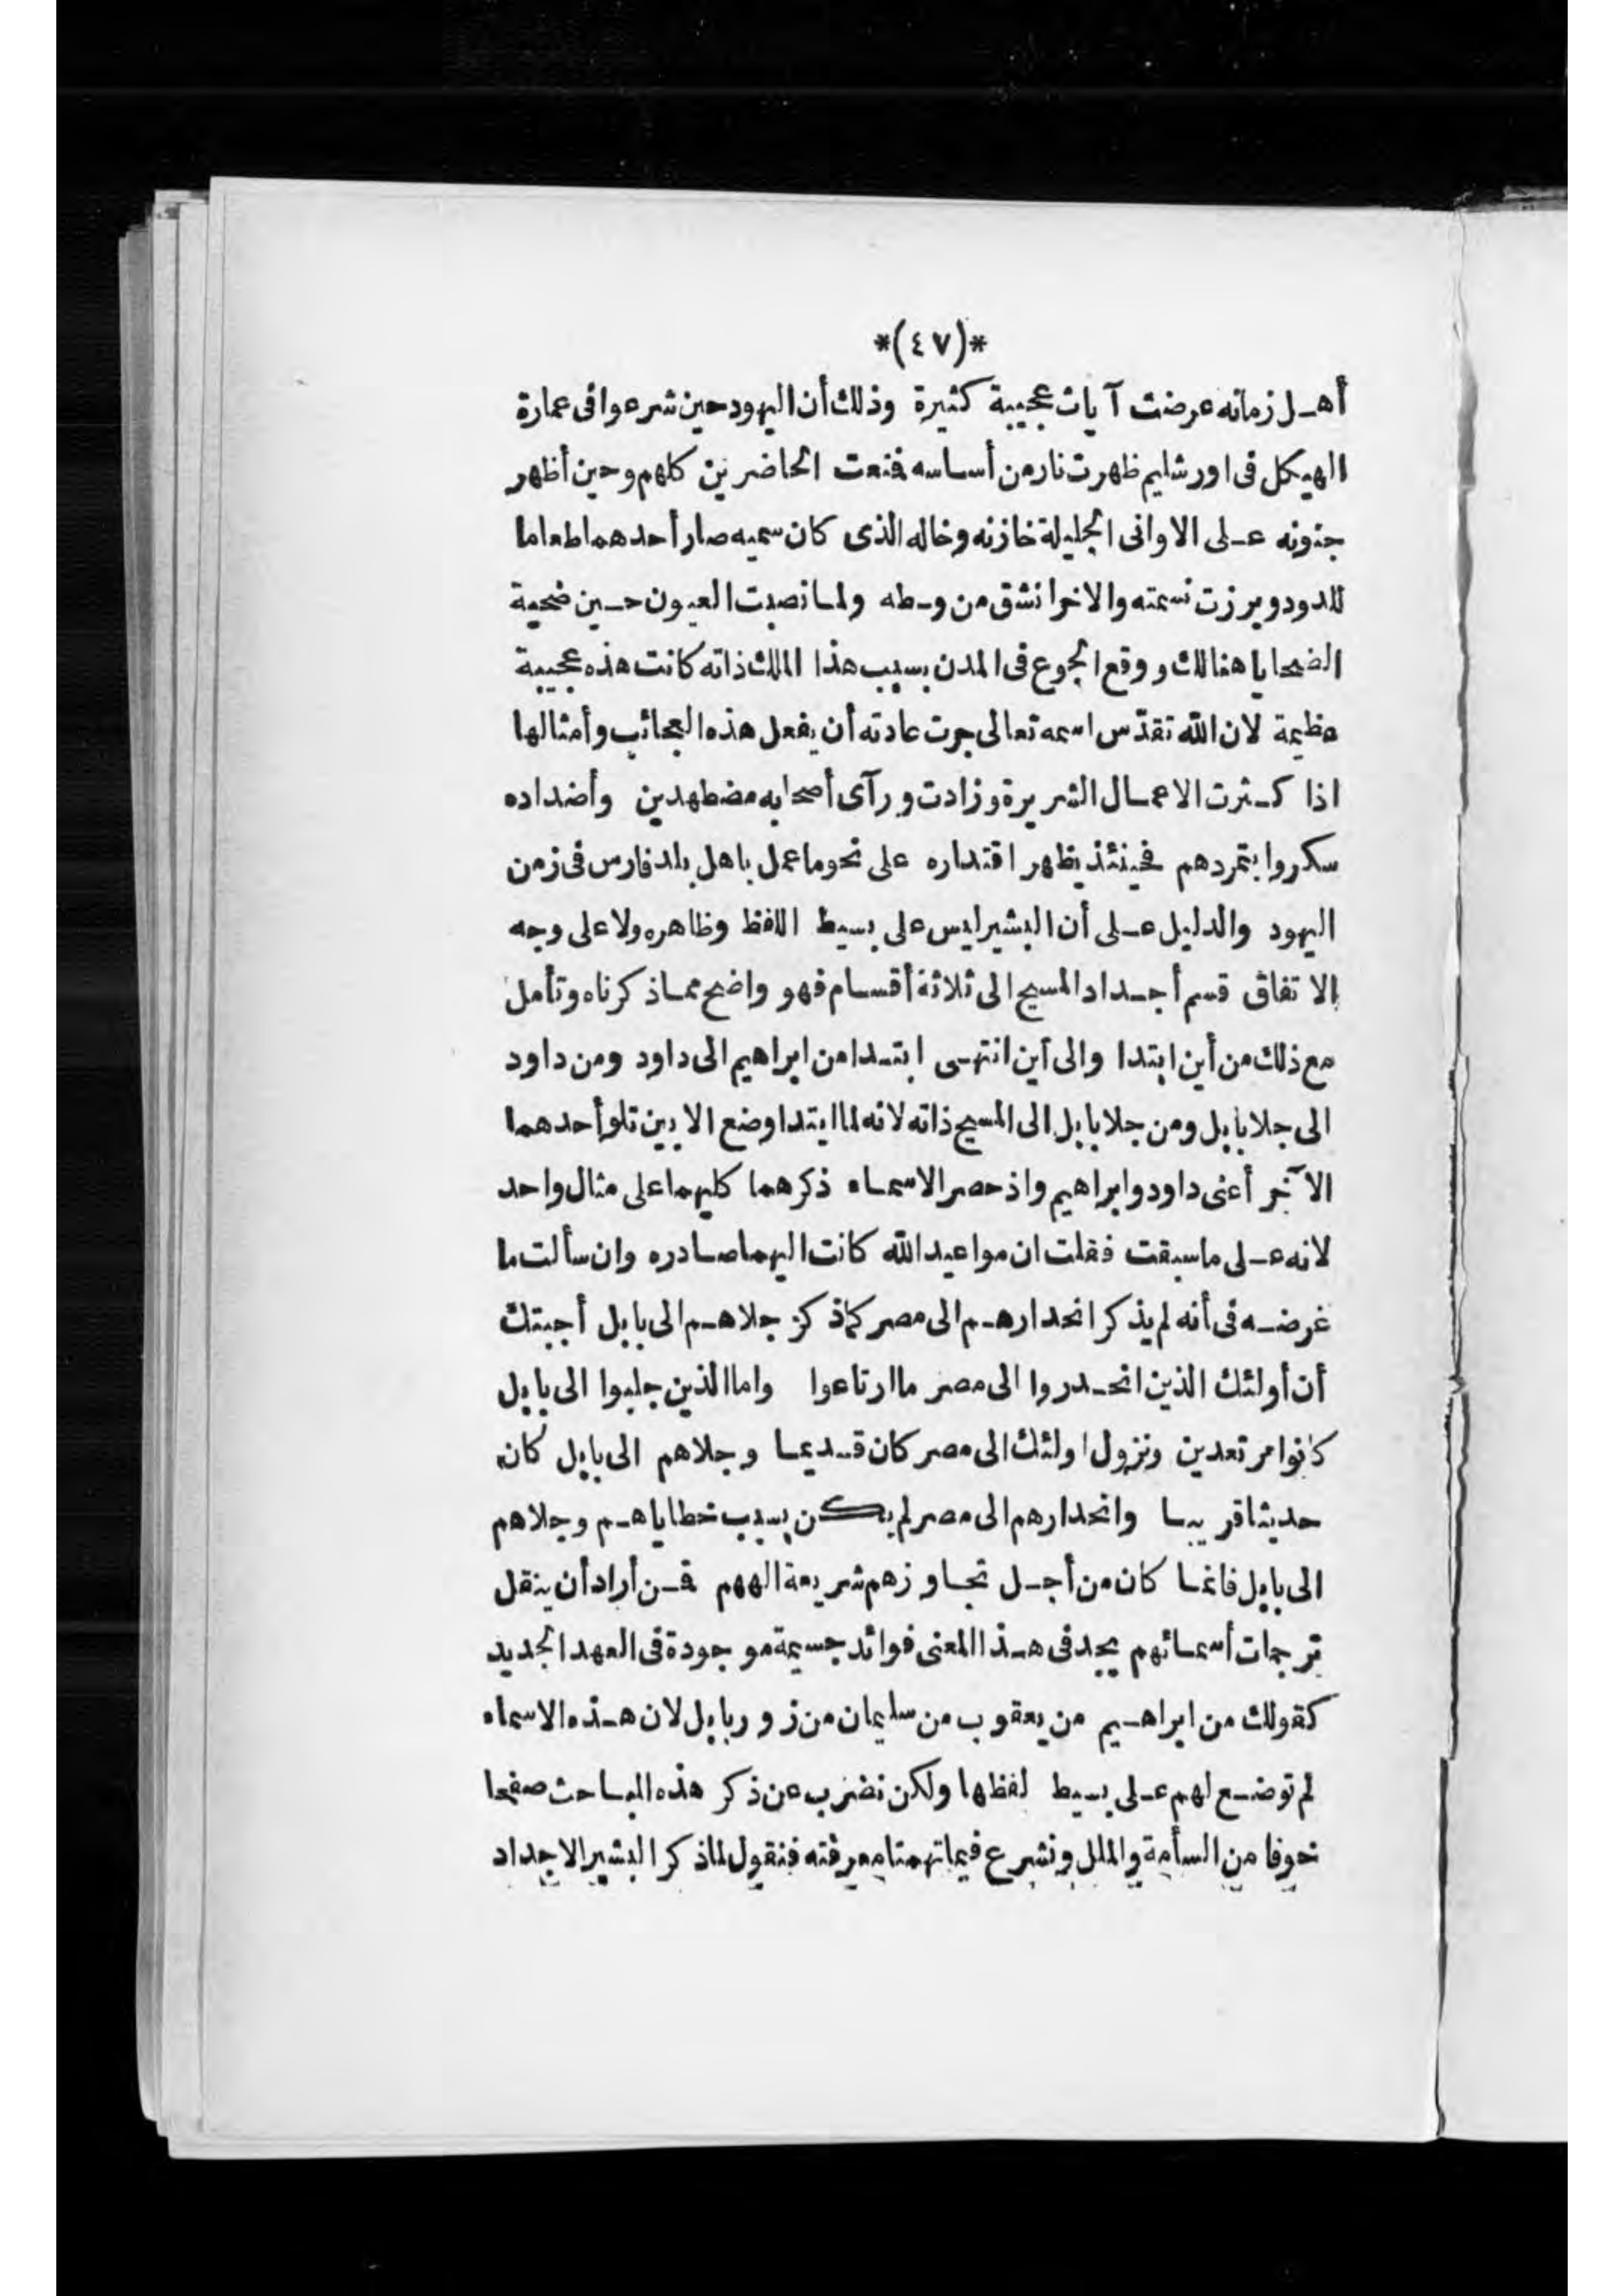 *(٤٧)*
أهل زمانه عرضت آيات عجيبة كثيرة وذلك أن اليهود حين شرعوا فى عمارة
الهيكل فى اورشليم ظهرت نار من أساسه فمنعت الحاضرين كلهم وحين أظهر
جنونه على الاوانى الجليلة خازنه وخاله الذى كان سميه صار أحدهما طعاما
للدود وبرزت نسمته والاخر انشق من وسطه ولما نصبت العيون حين ضحية
الضحايا هنالك ووقع الجوع فى المدن بسبب هذا الملك ذاته كانت هذه عجيبة
عظيمة لان الله تقدّس اسمه تعالى جرت عادته أن يفعل هذه العجائب وأمثالها
اذا كثرت الاعمال الشريرة وزادت ورآى أصحابه مضطهدين وأضداده
سكروا بتمردهم فحينئذ يظهر اقتداره على نحو ما عمل باهل بلد فارس فى زمن
اليهود والدليل على أن البشير ليس على بسيط اللفظ وظاهره ولا على وجه
الاتفاق قسم أجداد المسيح الى ثلاثة أقسام فهو واضح مما ذكرناه وتأمل
مع ذلك من أين ابتدا والى أين انتهى ابتدا من ابراهيم الى داود ومن داود
الى جلا بابل ومن جلا بابل الى المسيح ذاته لانه لما ابتدا وضع الابين تلو أحدهما
الآخر أعنى داود وابراهيم واذ حصر الاسماء ذكرهما كليهما على مثال واحد
لانه على ما سبقت فقلت ان مواعيد الله كانت اليهما صادره وان سألت ما
غرضه فى أنه لم يذكر انحدارهم الى مصر كما ذكر جلاهم الى بابل أجبتك
أن أولئك الذين انحدروا الى مصر ما ارتاعوا واما الذين جلبوا الى بابل
كانوا مرتعدين ونزول اولئك الى مصر كان قديما وجلاهم الى بابل كان
حديثا قريبا وانحدارهم الى مصر لم يكن بسبب خطاياهم وجلاهم
الى بابل فانما كان من أجل تجاوزهم شريعة الههم فمن أراد أن ينقل
ترجمات أسمائهم يجد فى هذا المعنى فوائد جسيمة موجودة فى العهد الجديد
كقولك من ابراهيم من يعقوب من سليمان من زوربابل لان هذه الاسماء
لم توضع لهم على بسيط لفظها ولكن نضرب عن ذكر هذه المباحث صفحا
خوفا من السأمة والملل ونشرع فيما تهمنا معرفته فنقول لما ذكر البشير الاجداد